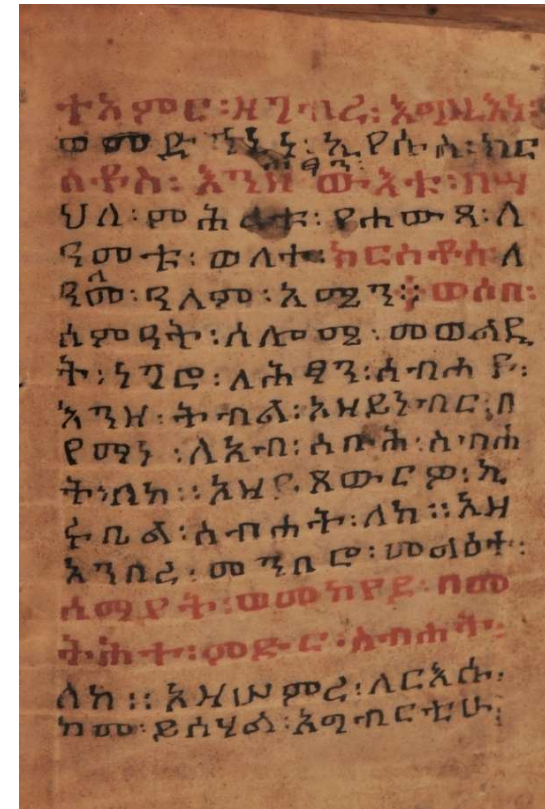 ተአምር፡ ዘገብረ፡ እግዚእነ፡
ወመድኀኒነ፡ ኢየሱስ፡ ክር
ስቶስ፡ እንዘ ውእቱ፡ በሣ
ህለ፡ ምሕረቱ፡ የሐውጻ፡ ለ
ዓመቱ፡ ወለተ፡ ክርስቶስ፡ ለ
ዓለመ፡ ዓለም፡ አሜን። ወሶበ፡
ሰምዓት፡ ሰሎሜ፡ መወልዲ
ት፡ ነገሮ፡ ለሕፃን፡ ሰብሐ
እንዘ፡ ትብል፡ አዘይነብር፡ በ
የማነ፡ ለአብ፡ ስቡሕ፡ ስብሐ
ት፡ ለከ። አዘ ጸውርዎ፡ ኪ
ሩቤል፡ ስብሐት፡ ለከ። አዘ
አንበረ፡ መንበሮ፡ መልዕተ፡
ሰማያት፡ ወመከየደ፡ በመ
ትሕተ፡ ምድር፡ ስብሐት፡
ለከ። አዘሠምረ፡ ለርእሱ፡
ከመ፡ ይሰሃል፡ አግብርቲሁ፡